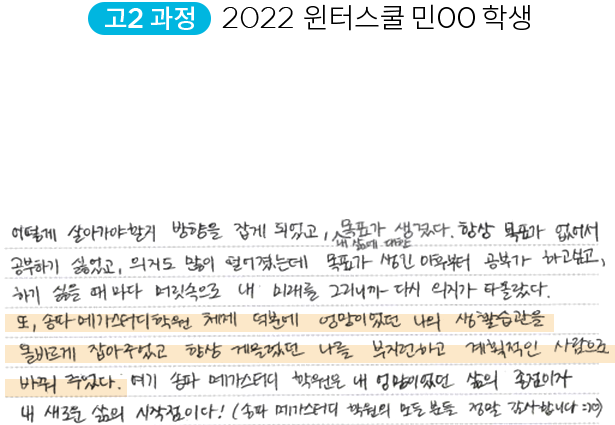 고2 과정 2022 윈터스쿨 민00 학생
어떻게 살아가야할지 방향을 잡게 되었고, 목표가 생겼다. 항상 목표가 없어서
내 삶에 대한
공부하기 싫었고, 의지도 많이 떨어졌는데 목표가 생긴 이후부터 공부가 하고싶고,
하기 싫을 때마다 머릿속으로 내 미래를 그리니까 다시 의지가 타올랐다.
또, 송파메가스터디학원 체제 덕분에 엉망이었던 나의 생활습관을
올바르게 잡아주었고 항상 게을렀던 나를 부지런하고 계획적인 사람으로
바꿔 주었다. 여기 송파 메가스터디 학원은 내 엉망이었던 삶의 종점이자
내 새로운 삶의 시작점이다! (송파 메가스터디 학원의 모든 분들 정말 감사합니다 :)